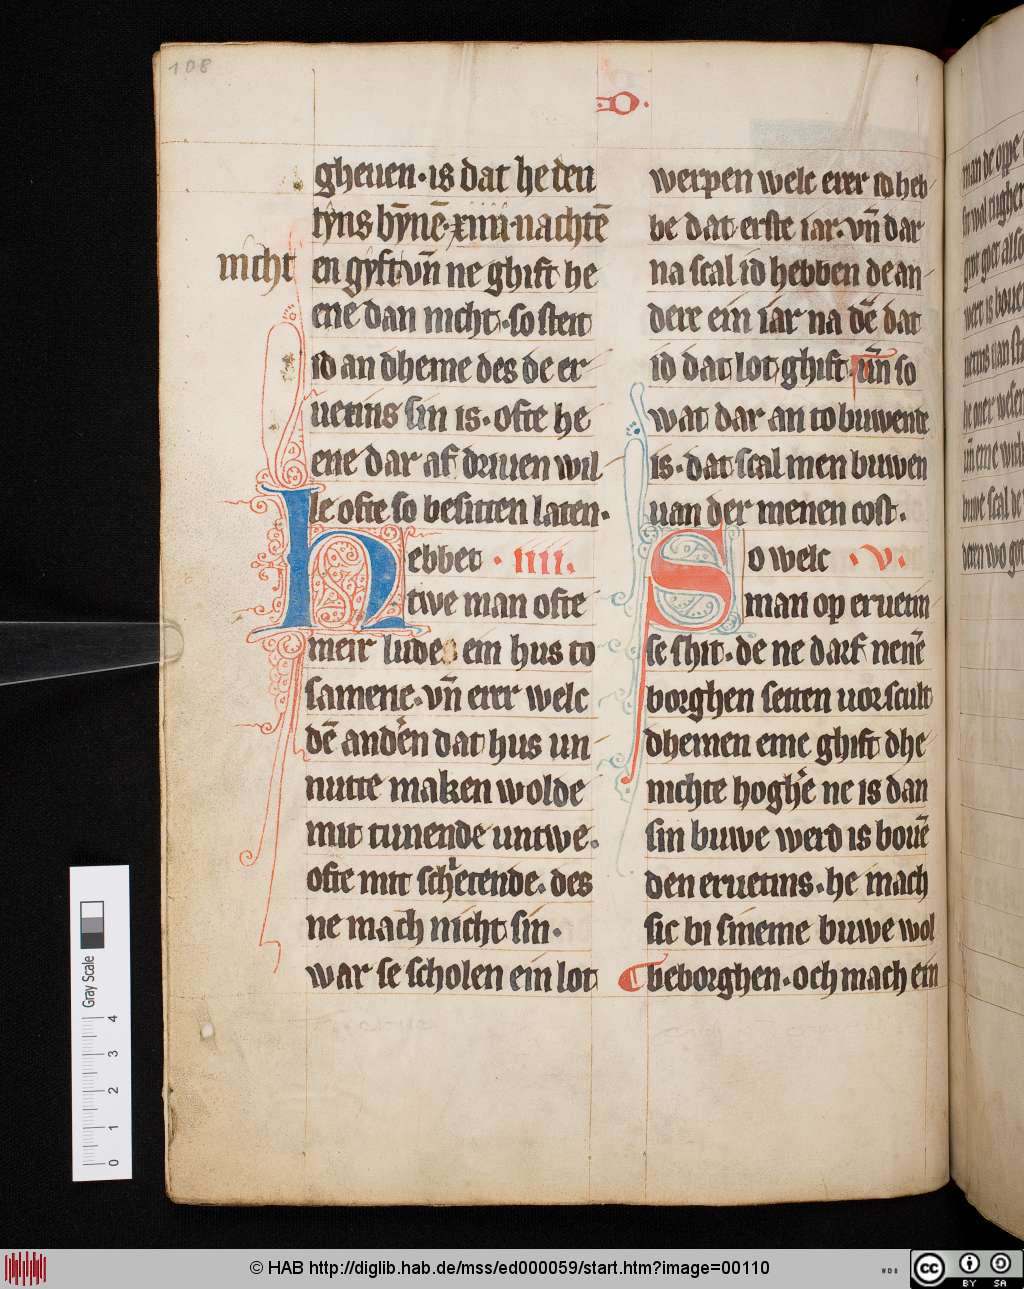 108
D.
gheuen · is dat he den
tyns bȳnē · xiiii · nachtē
nicht
en gyft vn̄ ne ghift he
ene dan nicht · so steit
id an dheme des de er
uetins sin is · ofte he
ene dar af driuen wil
le ofte so besitten laten ·
Hebbet · IIII ·
twe man ofte
meir lude ein hus to
samene · vn̄ erer welc
dē anderen dat hus un
nutte maken wolde
mit tunende untwe ·
ofte mit scherende · des
ne mach nicht sin ·
war se scholen ein lot
werpen welc erer id heb
be dat erste iar · vn̄ dar
na scal id hebben de an
dere ein iar na dē dat
id dat lot ghift · vn̄ so
wat dar an to buwente
is · dat scal men buwen
uan der menen cost ·
So welc · V ·
man op eruetin
se shit · de ne darf nenē
borghen setten uor scult
dhemen eme ghift dhe
nichte hogher ne is dan
sin buwe werd is bouē
den eruetins · he mach
sic bi sineme buwe wol
beborghen · och mach ein
man de oppe
Gray Scale
4
3
2
1
0
© HAB http://diglib.hab.de/mss/ed000059/start.htm?image=00110
WDB
cc
BY SA